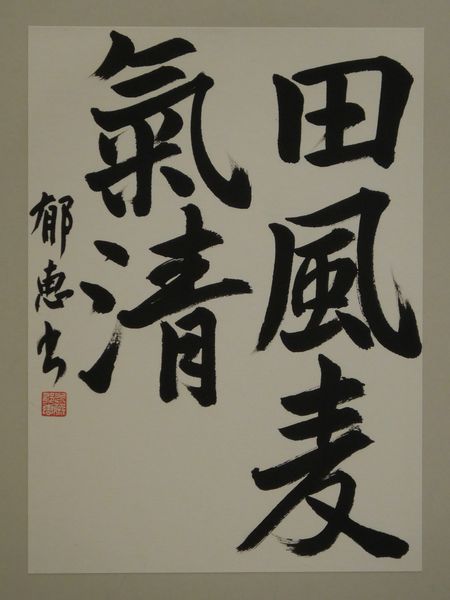 田風麦
氣清
郁恵书